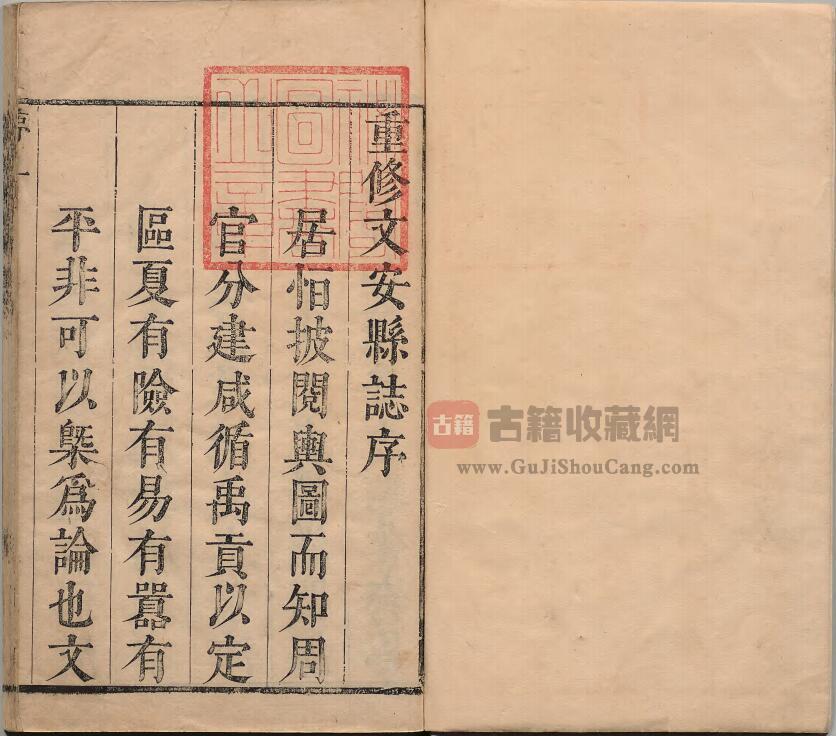 重修文安縣誌序
居怕披閱輿圖而知周
官分建咸循禹貢以定
區夏有險有易有囂有
平非可以槩爲論也文
古籍
古籍收藏網
www.GuJiShouCang.com